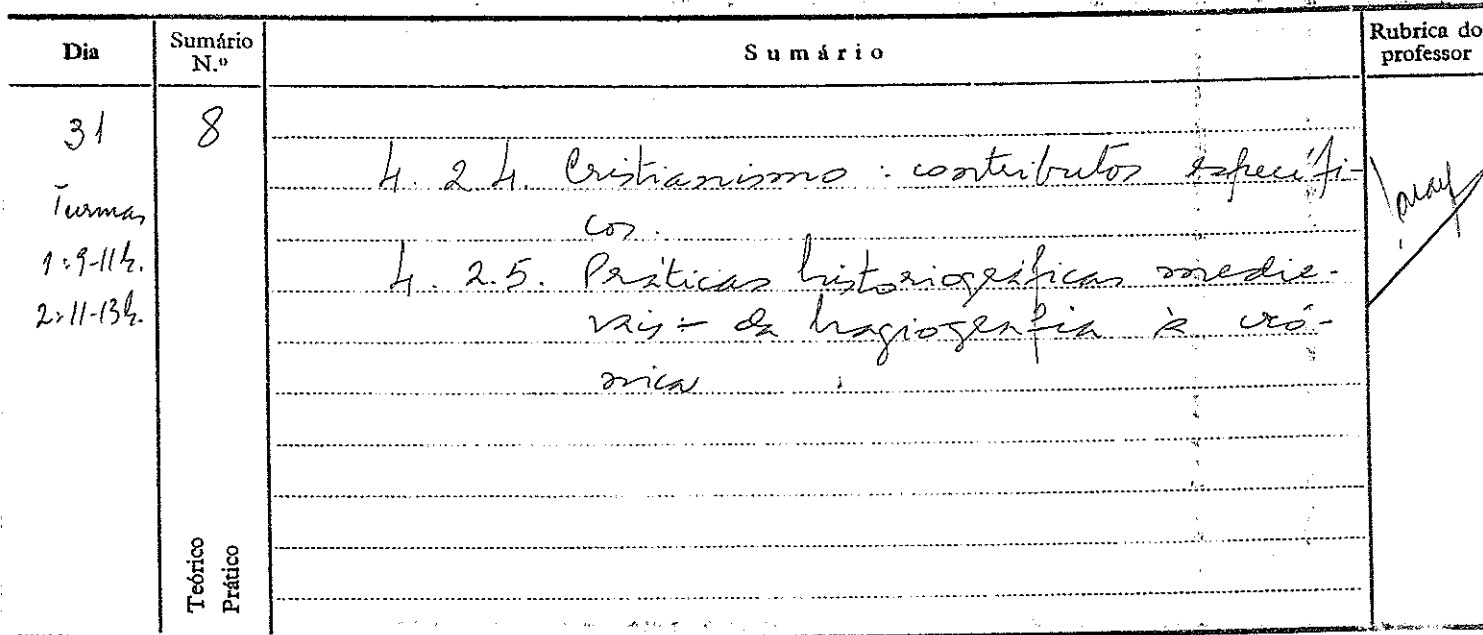 Dia
Sumário
N.º
Sumário
Rubrica do
professor
31
8
Turmas
1:9-11h.
2:11-13h.
4.2.4. Cristianismo: contributos específi-
cos.
4.2.5. Práticas historiográficas medie-
vais: da hagiografia à cró-
nica
Teórico
Prático